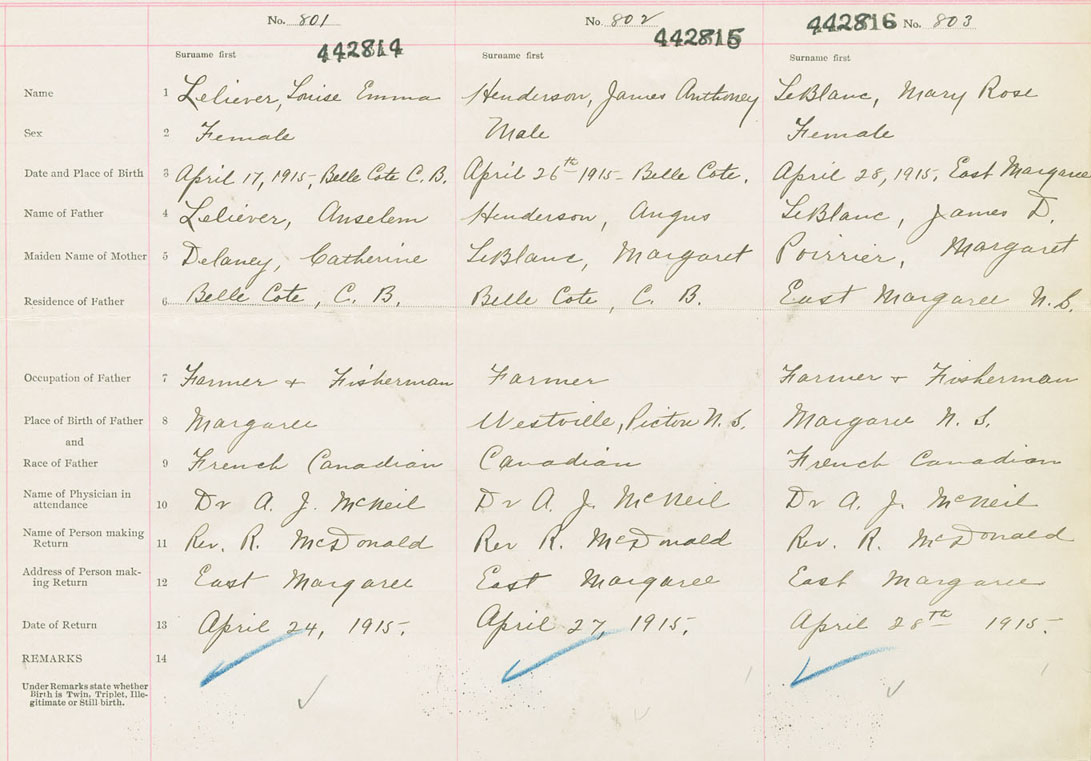 No. 801 No. 802 442816 No. 803
Surname first 442814 Surname first 442815 Surname first
Name 1 Leliever, Louise Emma Henderson, James Anthoney LeBlanc, Mary Rose
Sex 2 Female Male Female
Date and Place of Birth 3 April 17, 1915, Belle Cote C. B. April 26th 1915 - Belle Cote. April 28, 1915, East Margaree
Name of Father 4 Leliever, Anselem Henderson, Angus LeBlanc, James D.
Maiden Name of Mother 5 Delaney, Catherine LeBlanc, Margaret Poirrier, Margaret
Residence of Father 6 Belle Cote, C. B. Belle Cote, C. B. East Margaree N.S.
Occupation of Father 7 Farmer + Fisherman Farmer Farmer + Fisherman
Place of Birth of Father 8 Margaree Westville, Picton N. S. Margaree N. S.
and
Race of Father 9 French Canadian Canadian French Canadian
Name of Physician in
attendance 10 Dr A. J. McNeil Dr A. J. McNeil Dr A. J. McNeil
Name of Person making
Return 11 Rev. R. McDonald Rev R. McDonald Rev. R. McDonald
Address of Person mak-
ing Return 12 East Margaree East Margaree East Margaree
Date of Return 13 April 24, 1915. April 27, 1915. April 28th 1915.
REMARKS 14
Under Remarks state whether
Birth is Twin, Triplet, Ille-
gitimate or Still birth.